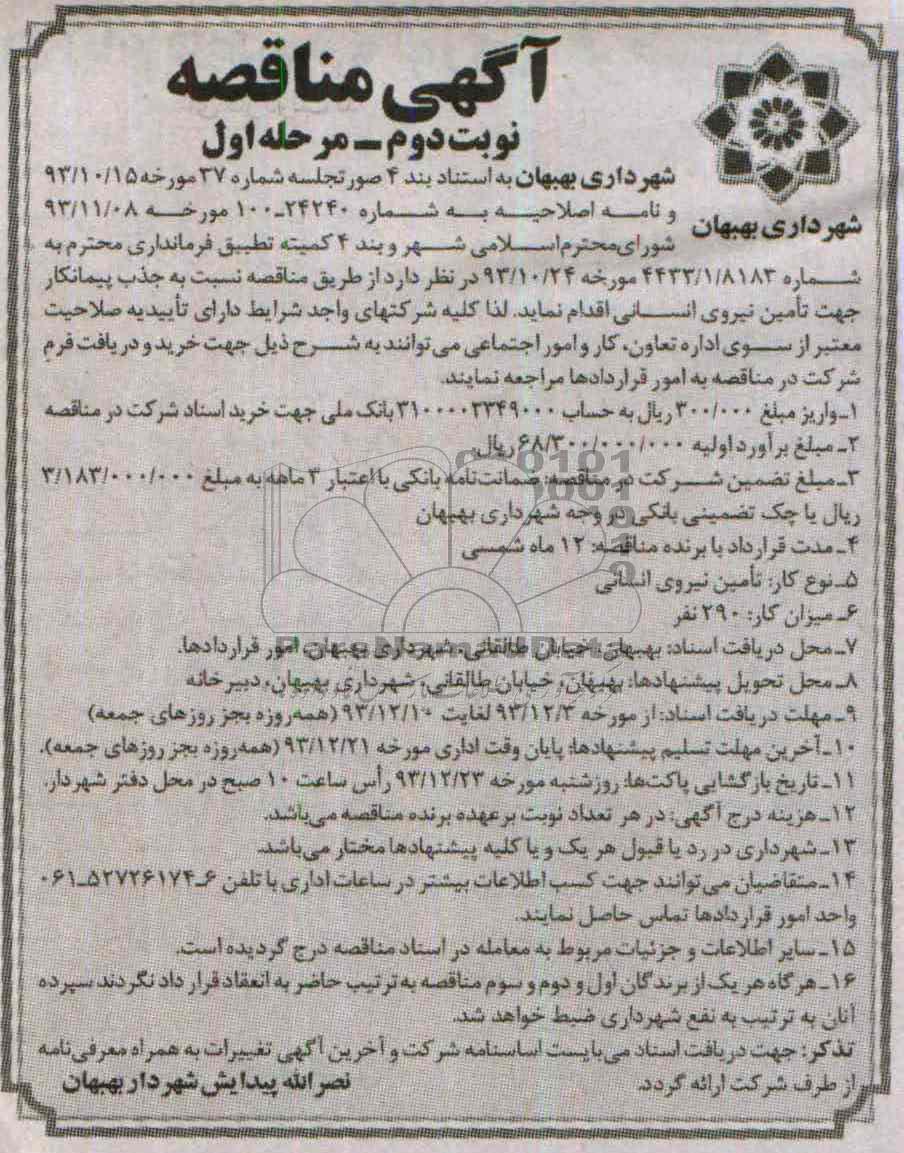 آگهی مناقصه
نوبت دوم ـ مرحله اول
شهرداری بهبهان
شهرداری بهبهان به استناد بند ۴ صورتجلسه شماره ۳۷ مورخه ۹۳/۱۰/۱۵
و نامه اصلاحیه به شماره ۲۴۲۴۰ـ۱۰۰ مورخه ۹۳/۱۱/۰۸
شورای محترم اسلامی شهر و بند ۴ کمیته تطبیق فرمانداری محترم به
شماره ۴۴۳۳/۱/۸۱۸۳ مورخه ۹۳/۱۰/۲۴ در نظر دارد از طریق مناقصه نسبت به جذب پیمانکار
جهت تأمین نیروی انسانی اقدام نماید. لذا کلیه شرکتهای واجد شرایط دارای تأییدیه صلاحیت
معتبر از سوی اداره تعاون، کار و امور اجتماعی می‌توانند به شرح ذیل جهت خرید و دریافت فرم
شرکت در مناقصه به امور قراردادها مراجعه نمایند.
۱ـ واریز مبلغ ۳۰۰/۰۰۰ ریال به حساب ۳۱۰۰۰۰۲۳۴۹۰۰۰ بانک ملی جهت خرید اسناد شرکت در مناقصه
۲ـ مبلغ برآورد اولیه ۶۸/۳۰۰/۰۰۰/۰۰۰ ریال.
۳ـ مبلغ تضمین شرکت در مناقصه: ضمانت‌نامه بانکی با اعتبار ۳ ماهه به مبلغ ۳/۱۸۳/۰۰۰/۰۰۰
ریال یا چک تضمینی بانکی در وجه شهرداری بهبهان
۴ـ مدت قرارداد با برنده مناقصه: ۱۲ ماه شمسی
۵ـ نوع کار: تأمین نیروی انسانی
۶ـ میزان کار: ۲۹۰ نفر
۷ـ محل دریافت اسناد: بهبهان، خیابان طالقانی، شهرداری بهبهان، امور قراردادها.
۸ـ محل تحویل پیشنهادها: بهبهان، خیابان طالقانی، شهرداری بهبهان، دبیرخانه
۹ـ مهلت دریافت اسناد: از مورخه ۹۳/۱۲/۳ لغایت ۹۳/۱۲/۱۰ (همه‌روزه بجز روزهای جمعه)
۱۰ـ آخرین مهلت تسلیم پیشنهادها: پایان وقت اداری مورخه ۹۳/۱۲/۲۱ (همه‌روزه بجز روزهای جمعه).
۱۱ـ تاریخ بازگشایی پاکت‌ها: روزشنبه مورخه ۹۳/۱۲/۲۳ رأس ساعت ۱۰ صبح در محل دفتر شهردار.
۱۲ـ هزینه درج آگهی: در هر تعداد نوبت برعهده برنده مناقصه می‌باشد.
۱۳ـ شهرداری در رد یا قبول هر یک و یا کلیه پیشنهادها مختار می‌باشد.
۱۴ـ متقاضیان می‌توانند جهت کسب اطلاعات بیشتر در ساعات اداری با تلفن ۶ـ۵۲۷۲۶۱۷۴ـ۰۶۱
واحد امور قراردادها تماس حاصل نمایند.
۱۵ـ سایر اطلاعات و جزئیات مربوط به معامله در اسناد مناقصه درج گردیده است.
۱۶ـ هرگاه هر یک از برندگان اول و دوم و سوم مناقصه به ترتیب حاضر به انعقاد قرارداد نگردند سپرده
آنان به ترتیب به نفع شهرداری ضبط خواهد شد.
تذکر: جهت دریافت اسناد می‌بایست اساسنامه شرکت و آخرین آگهی تغییرات به همراه معرفی‌نامه
از طرف شرکت ارائه گردد.
نصرالله پیدایش شهردار بهبهان